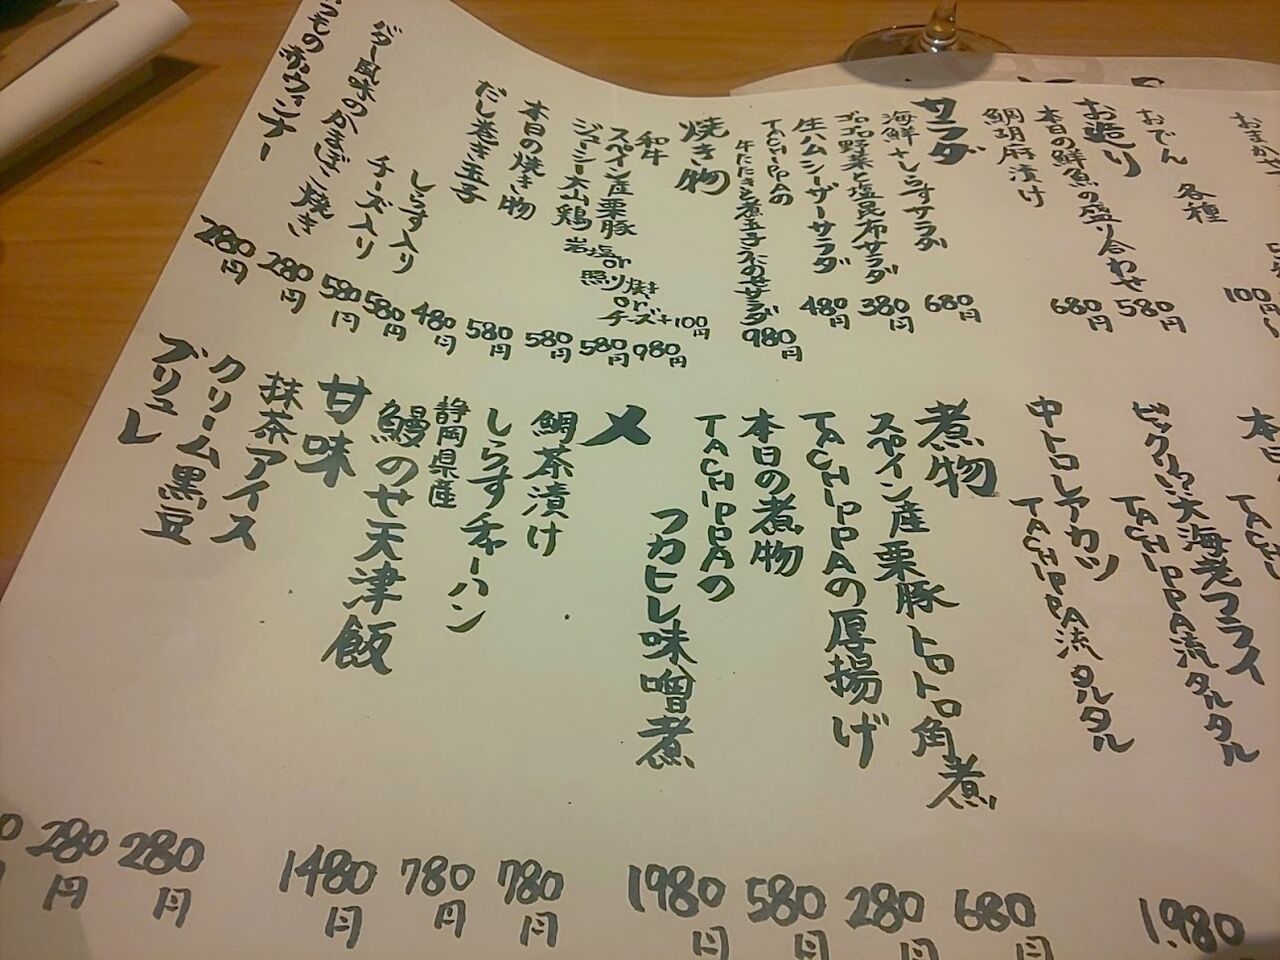 おでん 各種
お造り
本日の鮮魚の盛り合わせ 580円
鯛胡麻漬け 680円
サラダ
海鮮としらすサラダ 680円
ゴロゴロ野菜と塩昆布サラダ 380円
生ハムシーザーサラダ 480円
TACHIPPAの
牛たたきと煮玉子のせサラダ 980円
焼き物
和牛 980円
スペイン産栗豚 580円
ジューシー大山鶏 580円
岩塩or
照り焼き
or
チーズ+100円
本日の焼き物 580円
だし巻き玉子 480円
しらす入り 580円
チーズ入り 580円
バター風味のかまぼこ焼き 280円
赤ウィンナー 280円
100円
ビックリ!?大海老フライ
TACHIPPA流タルタル 1,980
中トロレアカツ
TACHIPPA流タルタル
煮物
スペイン産栗豚トロトロ角煮 680円
TACHIPPAの厚揚げ 280円
本日の煮物 580円
TACHIPPAの
フカヒレ味噌煮 1980円
〆
鯛茶漬け 780円
しらすチャーハン 780円
静岡県産
鰻のせ天津飯 1480円
甘味
抹茶アイス 280円
クリーム黒豆 280円
ブリュレ